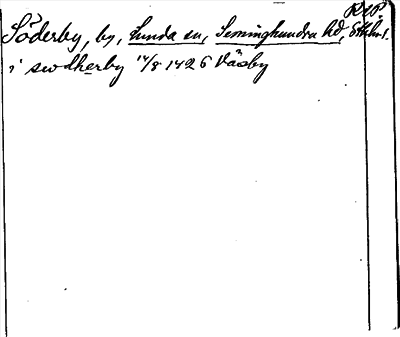 RAP
Söderby, by, Lunda sn, Seminghundra hd, Sthlm l.
i swdherby 14/8 1426 Väsby